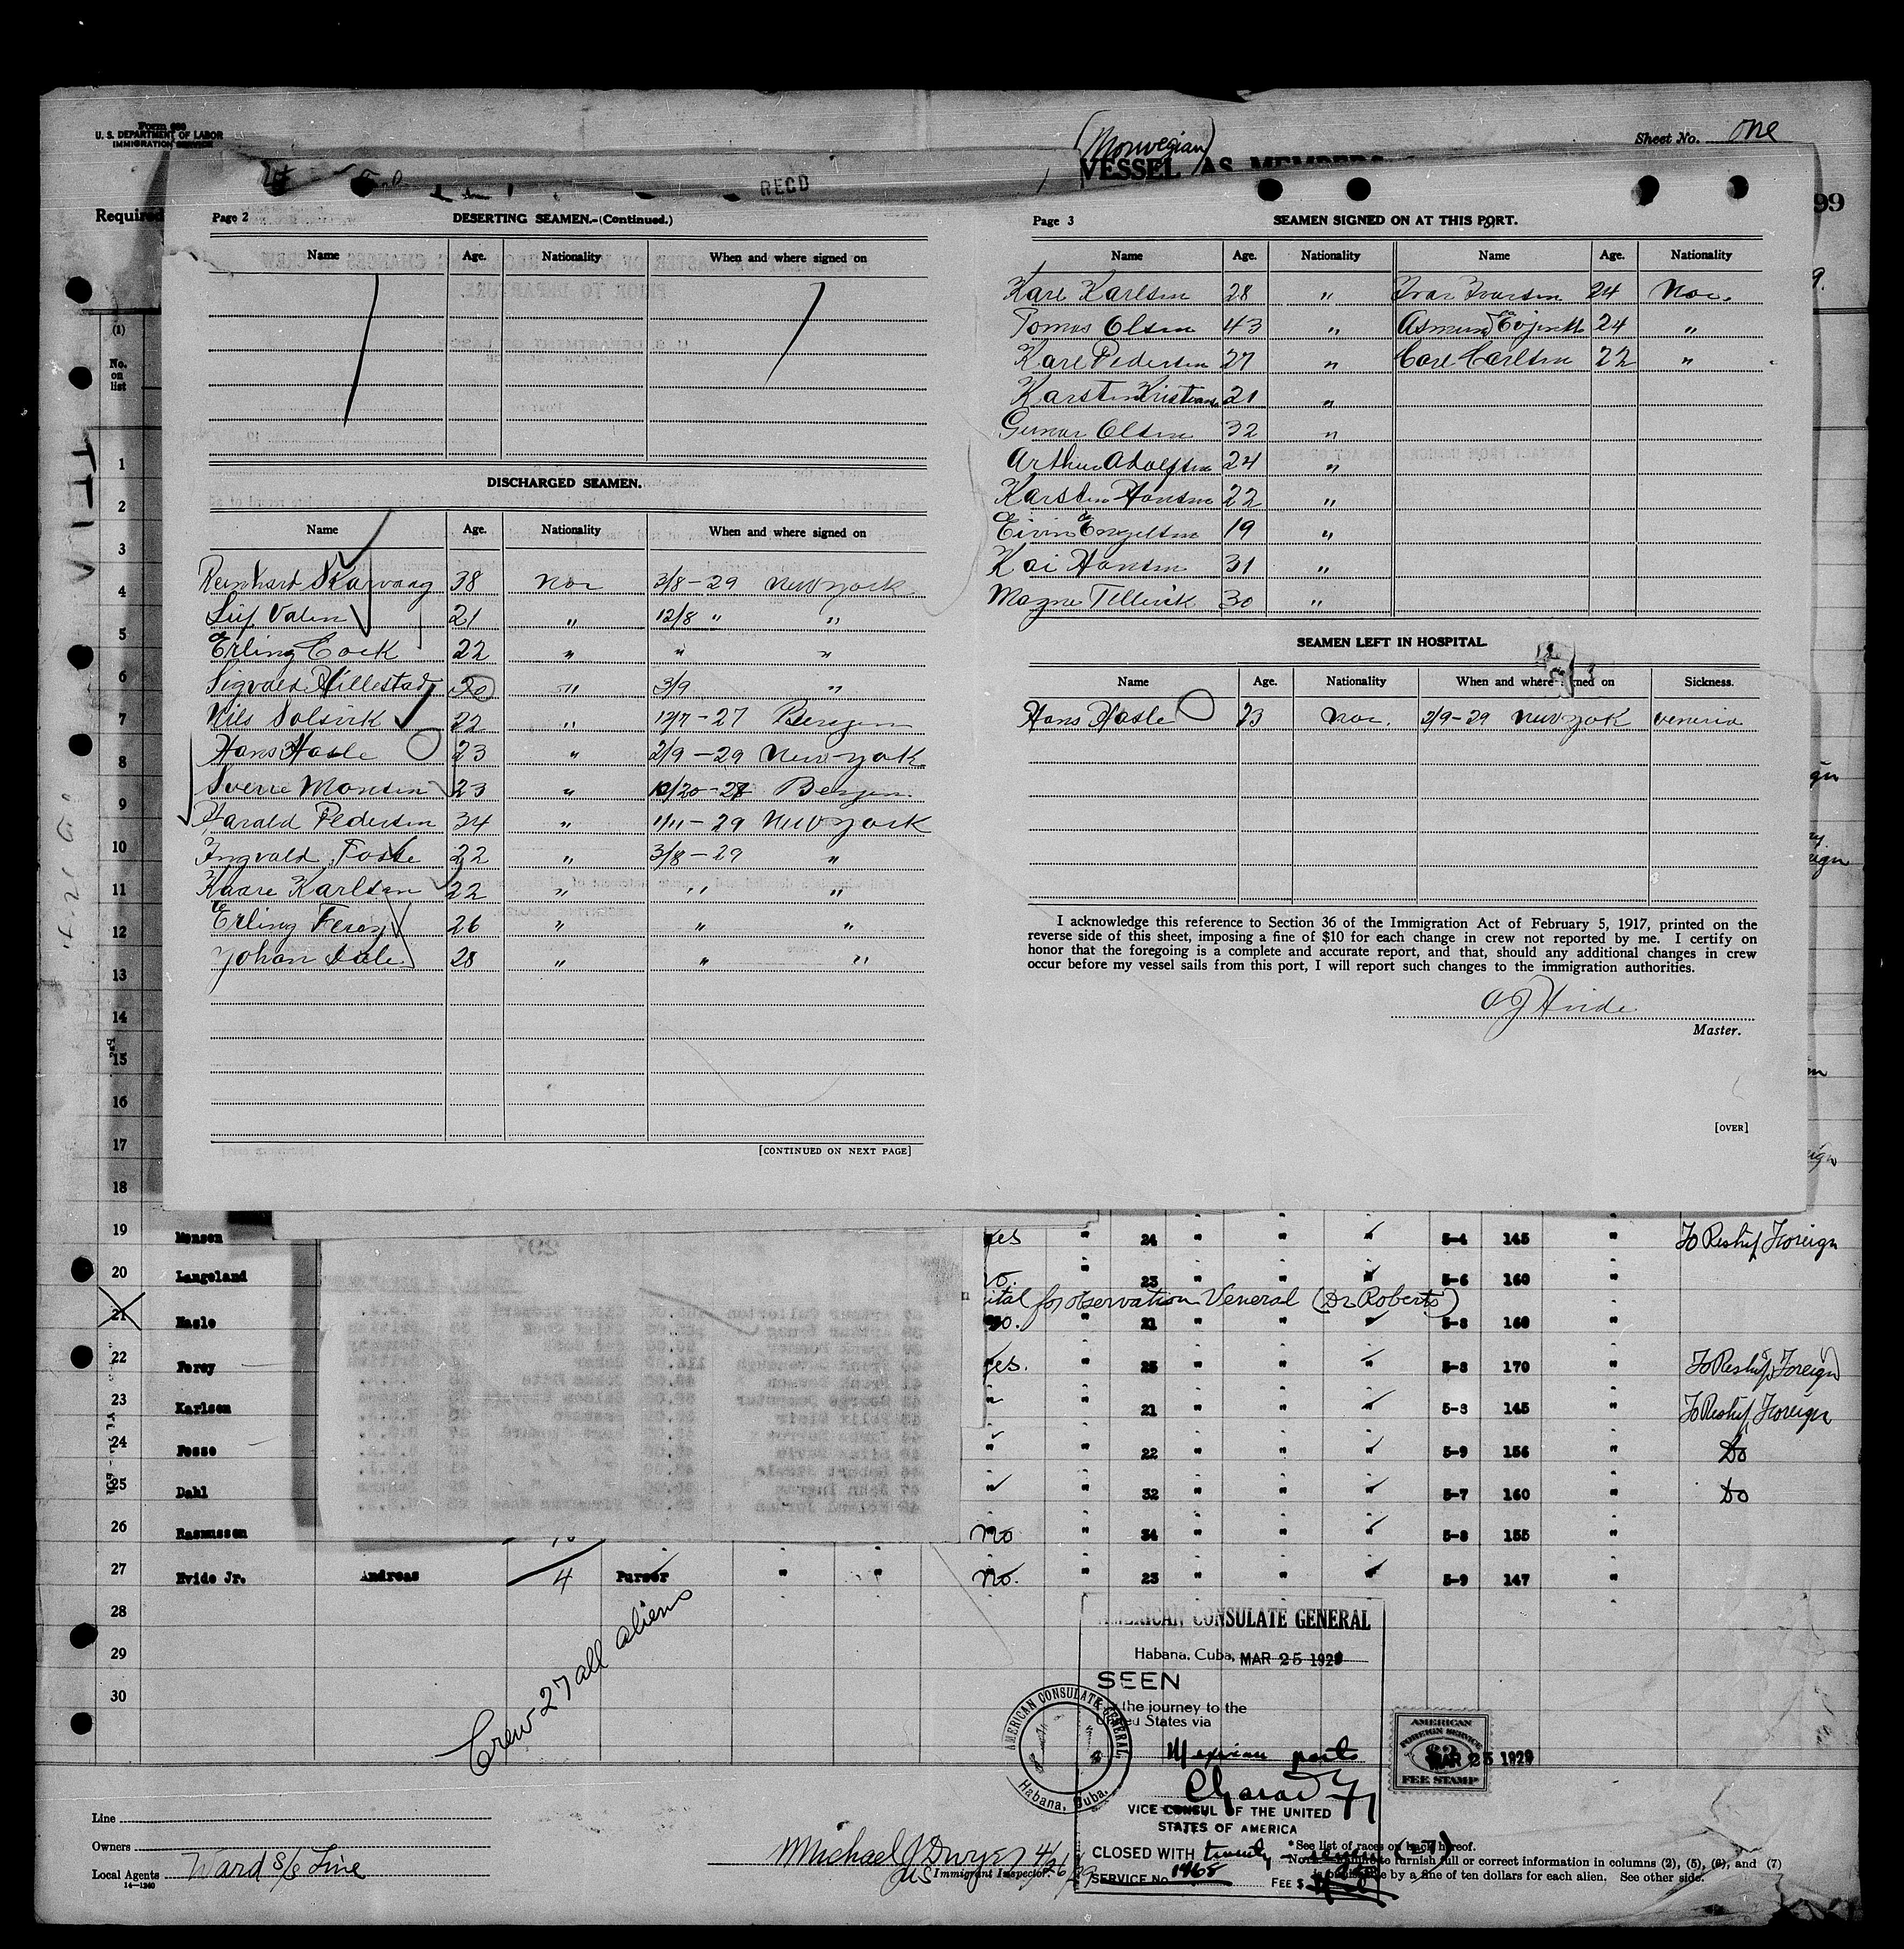 Form 680
U. S. DEPARTMENT OF LABOR
IMMIGRATION SERVICE
(Norwegian)
Sheet No. One
VESSEL AS MEMBERS
RECD
Required
99
Page 2
DESERTING SEAMEN.-(Continued.)
Name Age. Nationality When and where signed on
DISCHARGED SEAMEN.
Name Age. Nationality When and where signed on
Reinhard Skarvaag 38 Nor 3/8-29 New York
Leif Valen 21 " 12/8 " "
Erling Cock 22 " " "
Sigvald Hillestad 20 " 3/9 "
Nils Solsvik 22 " 12/7-27 Bergen
Hans Hasle 23 " 2/9-29 New York
Sverre Monsen 23 " 10/20-28 Bergen
Harald Pedersen 34 " 1/11-29 New York
Ingvald Fosse 22 " 3/8-29 "
Kaare Karlsen 22 " " "
Erling Feroy 26 " " "
Johan Dale 28 " " "
[CONTINUED ON NEXT PAGE]
Page 3
SEAMEN SIGNED ON AT THIS PORT.
Name Age. Nationality Name Age. Nationality
Kare Karlsen 28 " Ivar Ivarsen 24 Nor.
Tomas Olsen 43 " Asmund Evjenth 24 "
Kare Pedersen 27 " Carl Carlsen 22 "
Karsten Kristians 21 "
Gunar Olsen 32 "
Arthur Adolfsen 24 "
Karsten Hansen 22 "
Eivin Engelsen 19 "
Kai Hansen 31 "
Magne Tellevik 30 "
SEAMEN LEFT IN HOSPITAL.
Name Age. Nationality When and where signed on Sickness.
Hans Hasle 23 Nor. 2/9-29 New York veneria
I acknowledge this reference to Section 36 of the Immigration Act of February 5, 1917, printed on the
reverse side of this sheet, imposing a fine of $10 for each change in crew not reported by me. I certify on
honor that the foregoing is a complete and accurate report, and that, should any additional changes in crew
occur before my vessel sails from this port, I will report such changes to the immigration authorities.
A J Hvide
Master.
[OVER]
(1)
No.
on
list
1
2
3
4
5
6
7
8
9
10
11
12
13
14
15
16
17
18
19 Monsen yes " 24 " " " 5-4 145 " To Reship Foreign
20 Langeland no. " 23 " " " 5-6 160 "
ital for observation Veneral (Dr Roberts)
21 Hasle no. " 21 " " " 5-8 160 "
22 Feroy yes. " 25 " " " 5-8 170 " To Reship Foreign
23 Karlsen " " 21 " " " 5-3 145 " To Reship Foreign
24 Fosse " " 22 " " " 5-9 156 " Do
25 Dahl " " 32 " " " 5-7 160 " Do
26 Rasmussen no " 34 " " " 5-8 155 "
27 Hvide Jr. Andreas 4 Purser " " no. " 23 " " " 5-9 147 "
28
29
30
Crew 27 all aliens
AMERICAN CONSULATE GENERAL
Habana, Cuba, MAR 25 1929
SEEN
the journey to the
United States via
Mexican ports
VICE CONSUL OF THE UNITED
STATES OF AMERICA
CLOSED WITH twenty-seven (27)
SERVICE No. 1468
FEE $
AMERICAN CONSULATE GENERAL
Habana, Cuba.
AMERICAN
FOREIGN SERVICE
$2
MAR 25 1929
FEE STAMP
Line
Owners
Local Agents Ward S/S Line
14-1240
Michael J Dwyer 4/
US Immigrant Inspector.
*See list of races on back hereof.
NOTE.—Failure to furnish full or correct information in columns (2), (5), (6), and (7)
is punishable by a fine of ten dollars for each alien. See other side.